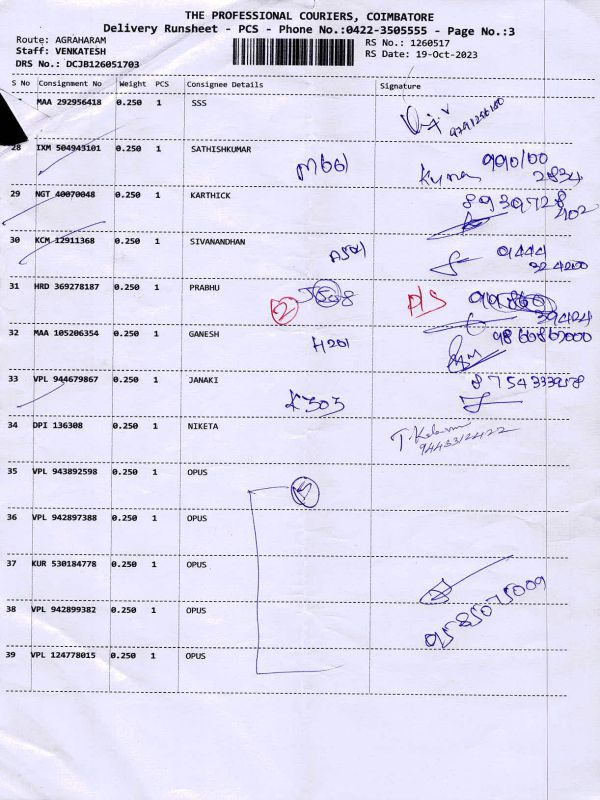 THE PROFESSIONAL COURIERS, COIMBATORE
Delivery Runsheet - PCS - Phone No.:0422-3505555 - Page No.:3
Route: AGRAHARAM
RS No.: 1260517
Staff: VENKATESH
RS Date: 19-Oct-2023
DRS No.: DCJB126051703
S No Consignment No Weight PCS Consignee Details Signature
MAA 292956418 0.250 1 SSS
28 IXM 504943101 0.250 1 SATHISHKUMAR
M601 Kumar 990100
2834
29 NGT 40070048 0.250 1 KARTHICK
8939728
402
30 KCM 12911368 0.250 1 SIVANANDHAN
A504 9444
324200
31 HRD 369278187 0.250 1 PRABHU
2 D/S
39424
32 MAA 105206354 0.250 1 GANESH
H201 9860860000
33 VPL 944679867 0.250 1 JANAKI
K303
34 DPI 136308 0.250 1 NIKETA
9443312422
35 VPL 943892598 0.250 1 OPUS
5
36 VPL 942897388 0.250 1 OPUS
37 KUR 530184778 0.250 1 OPUS
38 VPL 942899382 0.250 1 OPUS
9585075009
39 VPL 124778015 0.250 1 OPUS